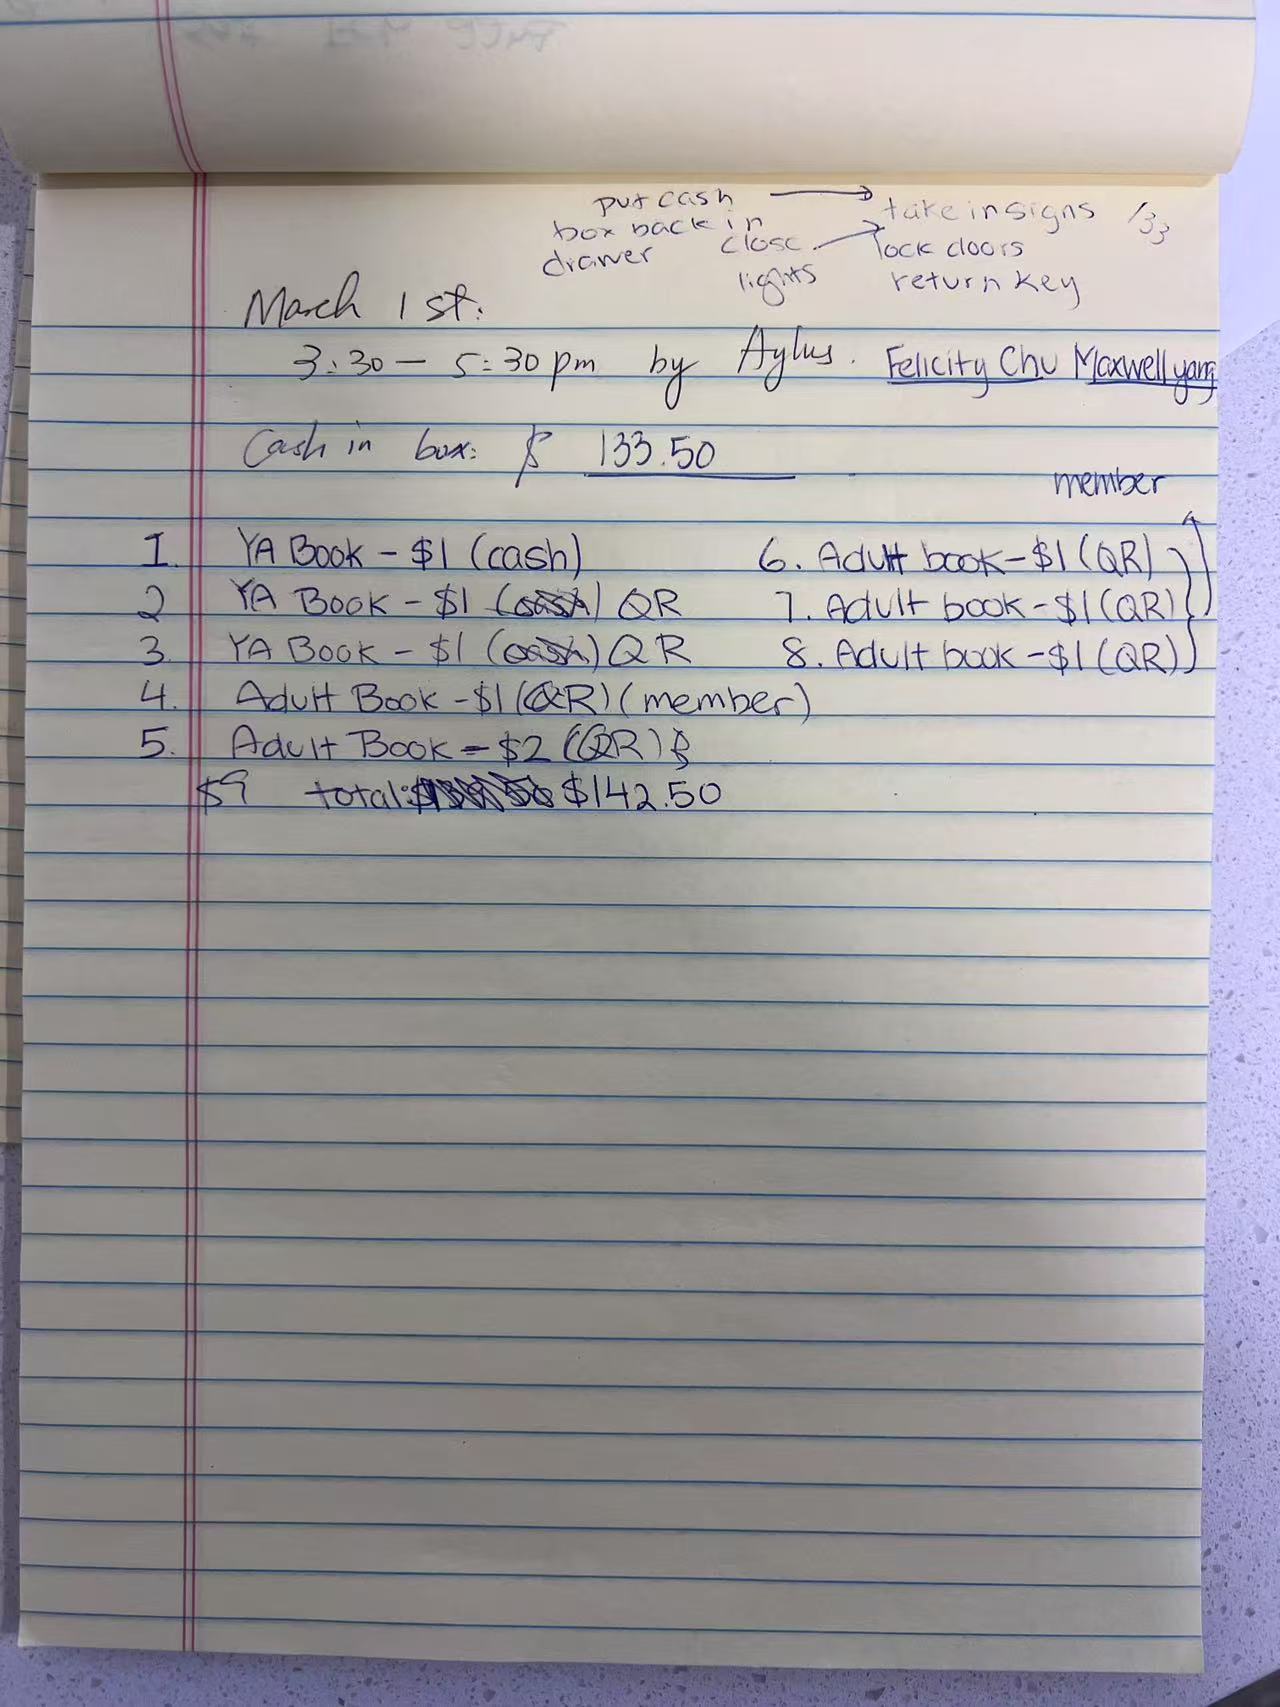 put cash → take in signs
box back in close → lock doors
drawer lights return key
March 1st:
3:30 – 5:30 pm by Aylus. Felicity Chu Maxwell yang
Cash in box: $ 133.50
member
1. YA Book - $1 (cash) 6. Adult book - $1 (QR)
2 YA Book - $1 (cash) QR 7. Adult book - $1 (QR)
3. YA Book - $1 (cash) QR 8. Adult book - $1 (QR)
4. Adult Book - $1 (QR) (member)
5. Adult Book - $2 (QR)
$9 total: $142.50